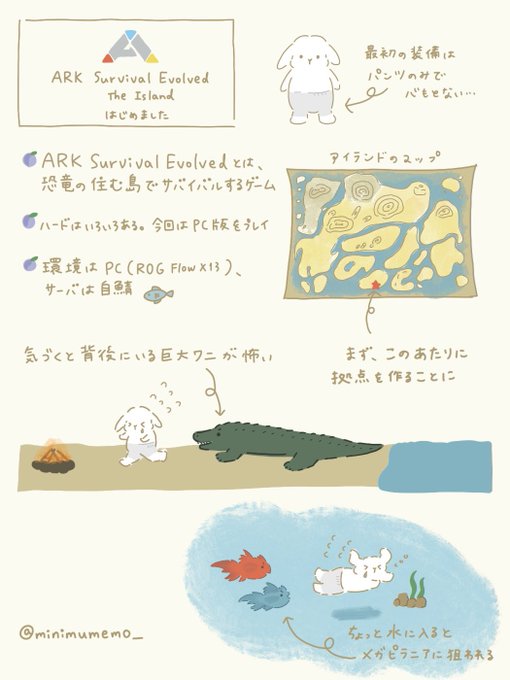 ARK Survival Evolved
The Island
はじめました
最初の装備は
パンツのみで
心もとない…
ARK Survival Evolvedとは、
恐竜の住む島でサバイバルするゲーム
ハードはいろいろある。今回はPC版をプレイ
環境はPC(ROG Flow X13)、
サーバは自鯖
アイランドのマップ
まず、このあたりに
拠点を作ることに
気づくと背後にいる巨大ワニが怖い
ちょっと水に入ると
メガピラニアに狙われる
@minimumemo_